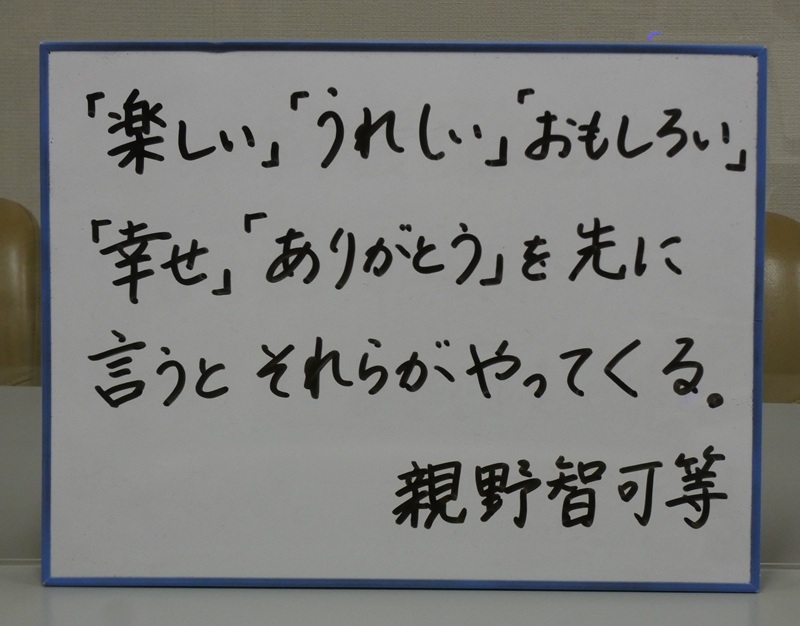 「楽しい」「うれしい」「おもしろい」
「幸せ」「ありがとう」を先に
言うとそれらがやってくる。
親野智可等